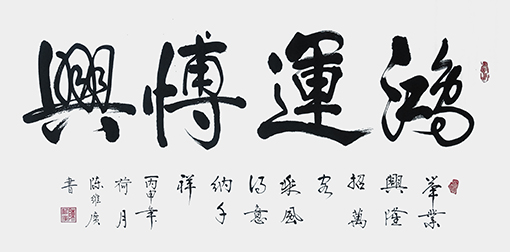 鴻運愽興
業
興隆
招萬
客
乘風
得意
納千
祥
丙申年
荷月
陈維廣
書